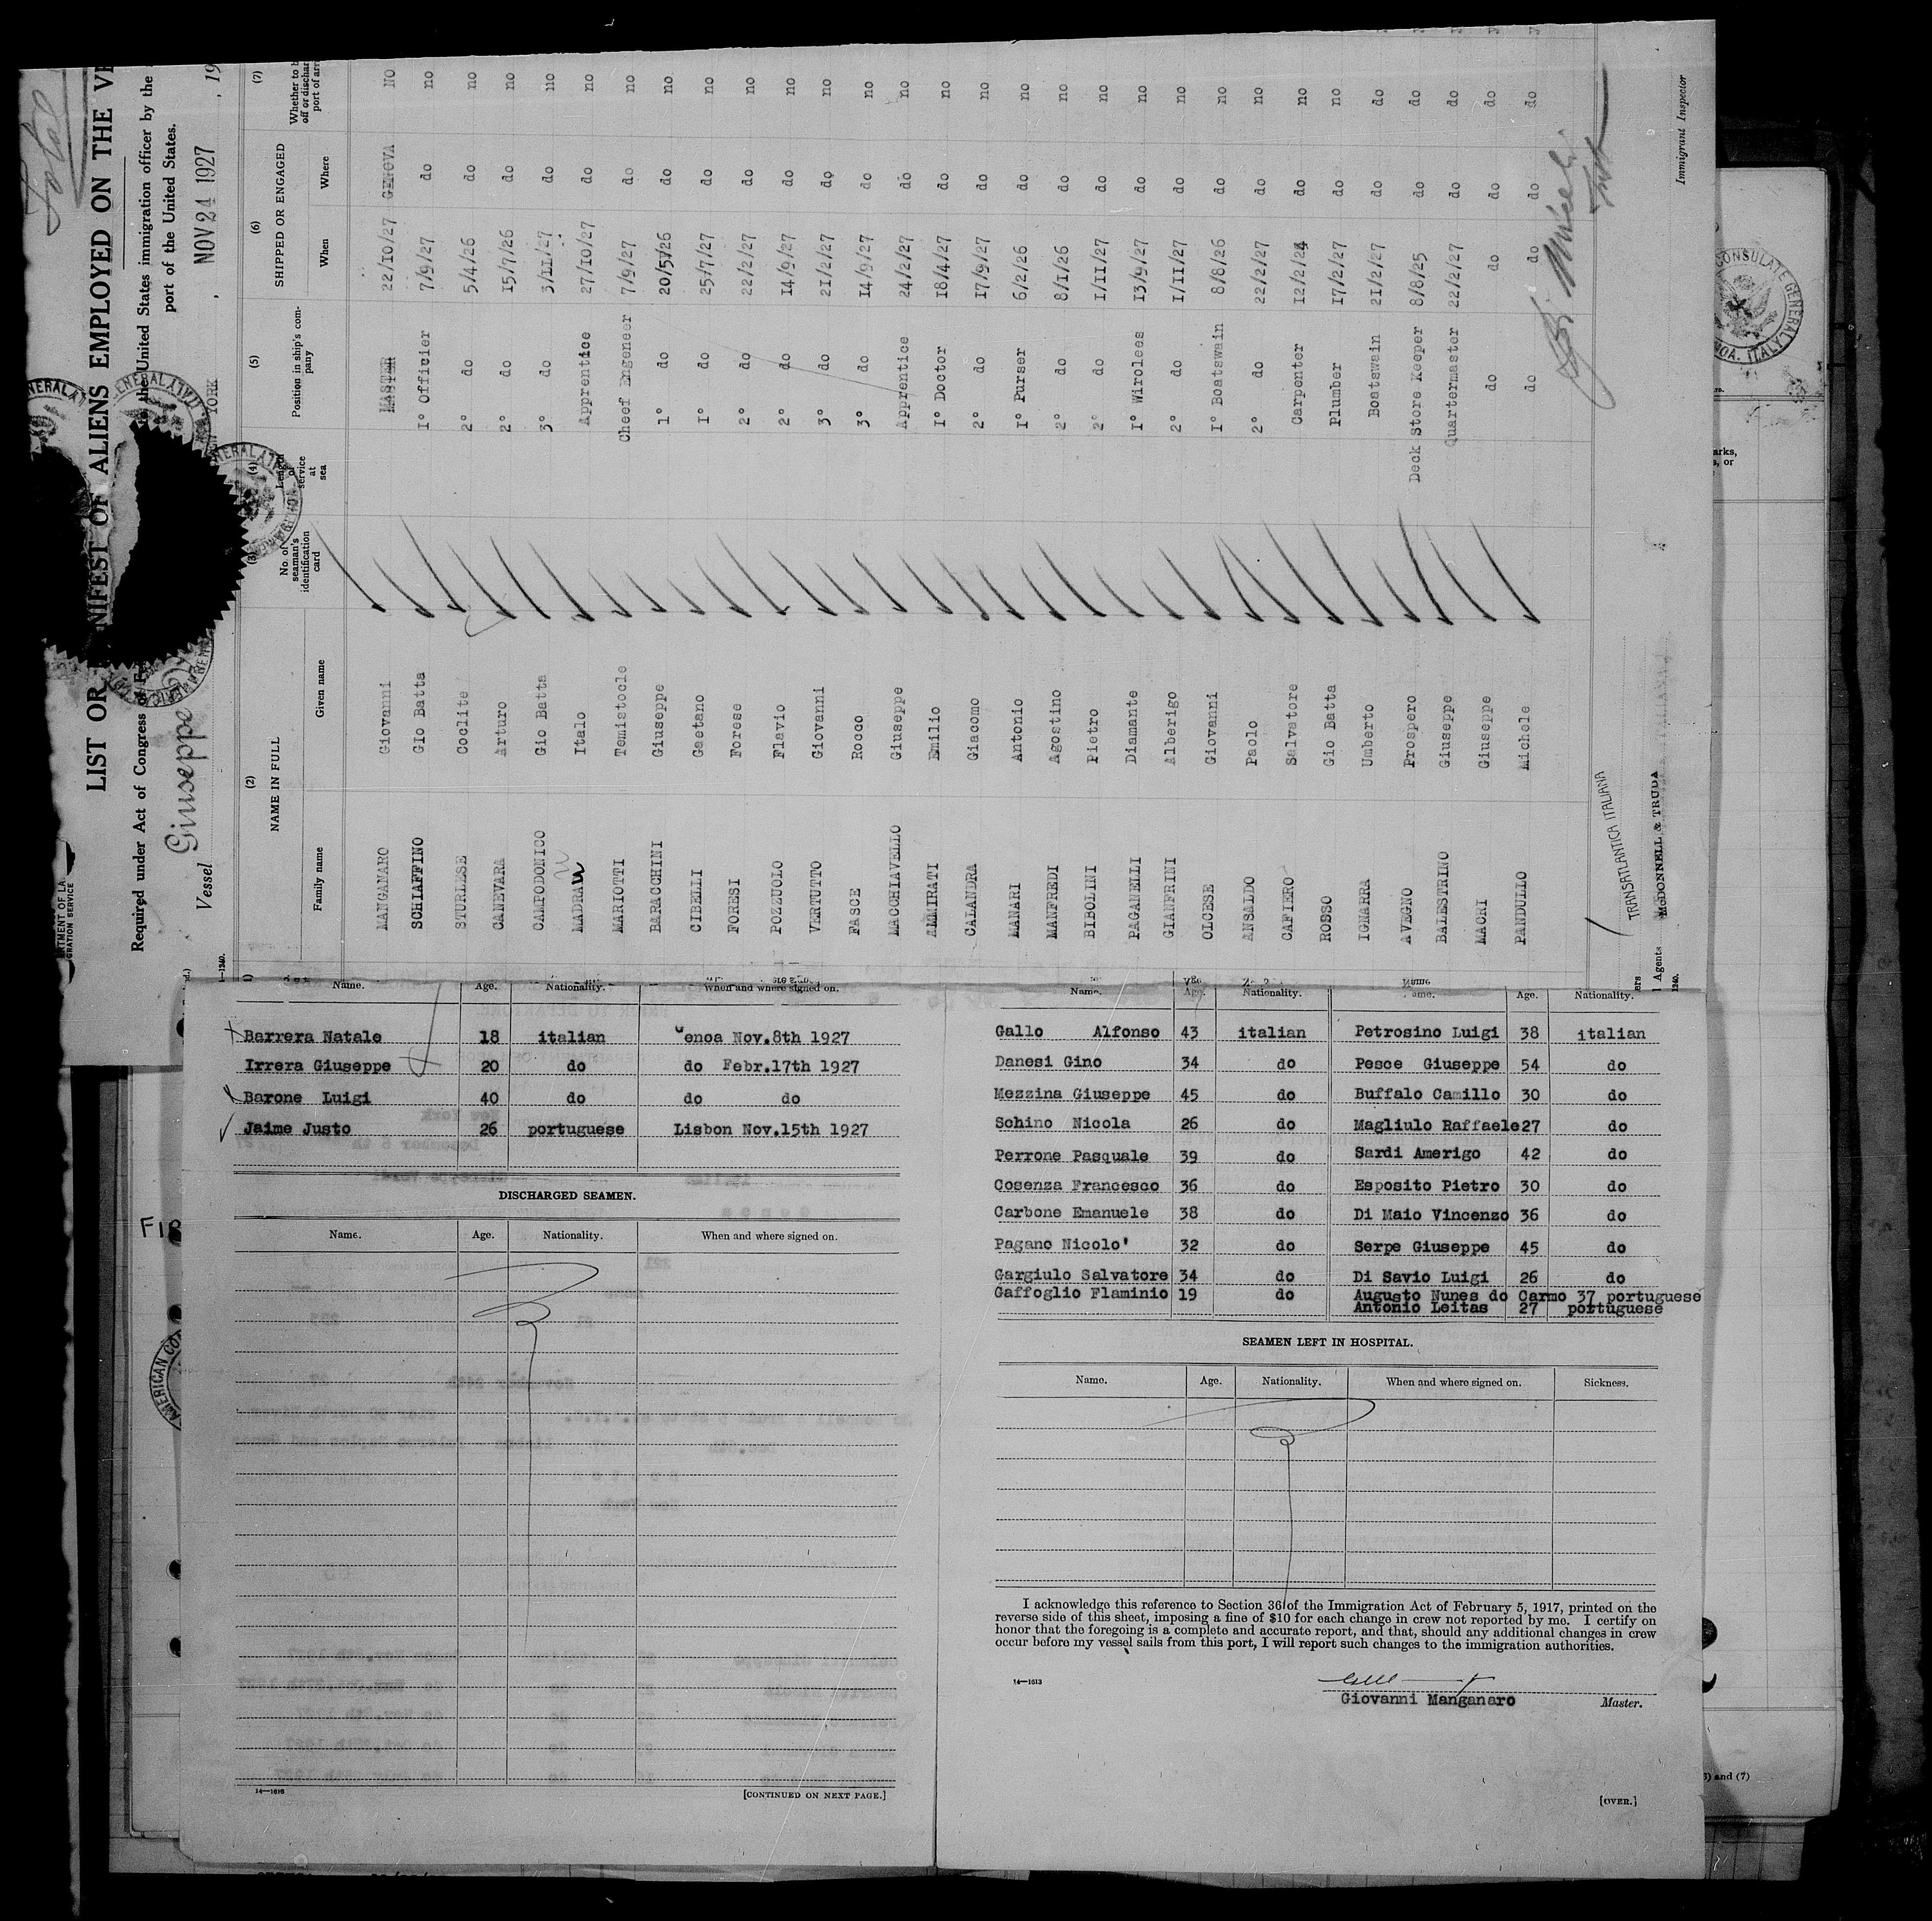 LIST OR
NIFEST OF ALIENS EMPLOYED ON THE VE
Required under Act of Congress of F
the United States immigration officer by the
port of the United States.
Vessel Giuseppe
YORK , NOV 24 1927 , 19
(2) (3) (4) (5) (6) (7)
NAME IN FULL No. of seaman's identification card Length of service at sea Position in ship's company SHIPPED OR ENGAGED Whether to b
off or dischar
port of arr
Family name Given name When Where
MANGANARO Giovanni MASTER 22/10/27 GENOVA NO
SCHIAFFINO Gio Batta I° Officier 7/9/27 do no
STURLESE Coclite 2° do 5/4/26 do no
CANEVARA Arturo 2° do 15/7/26 do no
CAMPODONICO Gio Batta 3° do 3/11/27 do no
MADRAU Italo Apprentice 27/10/27 do no
MARIOTTI Temistocle Cheef Engeneer 7/9/27 do no
BARACCHINI Giuseppe 1° do 20/5/26 do no
CIBELLI Gaetano I° do 25/7/27 do no
FORESI Forese 2° do 22/2/27 do no
POZZUOLO Flavio 2° do 14/9/27 do no
VERTUTTO Giovanni 3° do 21/2/27 do no
FASCE Rocco 3° do 14/9/27 do no
MACCHIAVELLO Giuseppe Apprentice 24/2/27 do no
AMMIRATI Emilio I° Doctor 18/4/27 do no
CALANDRA Giacomo 2° do 17/9/27 do no
MANARI Antonio I° Purser 6/2/26 do no
MANFREDI Agostino 2° do 8/1/26 do no
BIBOLINI Pietro 2° do 1/11/27 do no
PAGANELLI Diamante I° Wirolees 13/9/27 do no
GIANFRINI Alberigo 2° do 1/11/27 do no
OLCESE Giovanni I° Boatswain 8/8/26 do no
ANSALDO Paolo 2° do 22/2/27 do no
CAFIERO Salvatore Carpenter 12/2/24 do no
ROSSO Gio Batta Plumber 17/2/27 do no
IGNARRA Umberto Boatswain 21/2/27 do do
AVEGNO Prospero Deck Store Keeper 8/8/25 do do
BALESTRINO Giuseppe Quartermaster 22/2/27 do do
MACRI Giuseppe do do do do
PANDULLO Michele do do do do
TRANSATLANTICA ITALIANA
Agents McDONNELL & TRUDA
Immigrant Inspector
Name. Age. Nationality. When and where signed on.
Barrera Natale 18 italian enoa Nov.8th 1927
Irrera Giuseppe 20 do do Febr.17th 1927
Barone Luigi 40 do do do
Jaime Justo 26 portuguese Lisbon Nov.15th 1927
DISCHARGED SEAMEN.
Name. Age. Nationality. When and where signed on.
14—1613
[CONTINUED ON NEXT PAGE.]
Name. Age. Nationality. Name. Age. Nationality.
Gallo Alfonso 43 italian Petrosino Luigi 38 italian
Danesi Gino 34 do Pesce Giuseppe 54 do
Mezzina Giuseppe 45 do Buffalo Camillo 30 do
Schino Nicola 26 do Magliulo Raffaele27 do
Perrone Pasquale 39 do Sardi Amerigo 42 do
Cosenza Francesco 36 do Esposito Pietro 30 do
Carbone Emanuele 38 do Di Maio Vincenzo 36 do
Pagano Nicolo' 32 do Serpe Giuseppe 45 do
Gargiulo Salvatore 34 do Di Savio Luigi 26 do
Gaffoglio Flaminio 19 do Augusto Nunes do Carmo 37 portuguese
Antonio Leitas 27 portuguese
SEAMEN LEFT IN HOSPITAL.
Name. Age. Nationality. When and where signed on. Sickness.
I acknowledge this reference to Section 36 of the Immigration Act of February 5, 1917, printed on the
reverse side of this sheet, imposing a fine of $10 for each change in crew not reported by me. I certify on
honor that the foregoing is a complete and accurate report, and that, should any additional changes in crew
occur before my vessel sails from this port, I will report such changes to the immigration authorities.
14—1613
Giovanni Manganaro Master.
[OVER.]
CONSULATE GENERAL
NOA. ITALY
arks,
s, or
) and (7)
AMERICAN CO